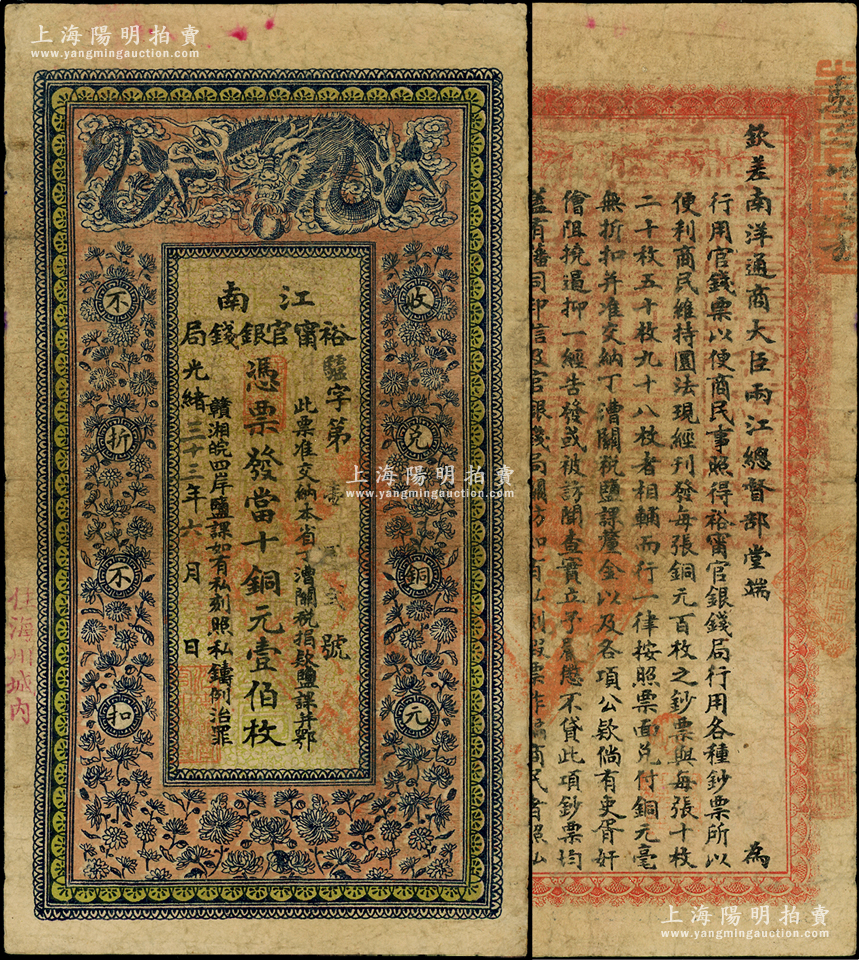 上海陽明拍賣
www.yangmingauction.com
江南
裕甯官銀錢局
收兌銅元
不折不扣
字第 貳號
此票准交納本省丁漕關稅捐款鹽課并鄂
憑票發當十銅元壹伯枚
贛湘皖四岸鹽課如有私刻照私鑄例治罪
光緒三十三年六月 日
海州城內
欽差南洋通商大臣兩江總督部堂端 為
行用官錢票以便商民事照得裕甯官銀錢局行用各種鈔票所以
便利商民維持圜法現經刊發每張銅元百枚之鈔票與每張十枚
二十枚五十枚九十八枚者相輔而行一律按照票面兌付銅元毫
無折扣并准交納丁漕關稅鹽課釐金以及各項公款倘有吏胥奸
僧阻撓遏抑一經告發或被訪聞查實立予嚴懲不貸此項鈔票均
蓋有藩司印信及官銀錢局關防如有私刻假票詐騙商民者照私
上海陽明拍賣
www.yangmingauction.com
上海陽明拍賣
www.yangmingauction.com